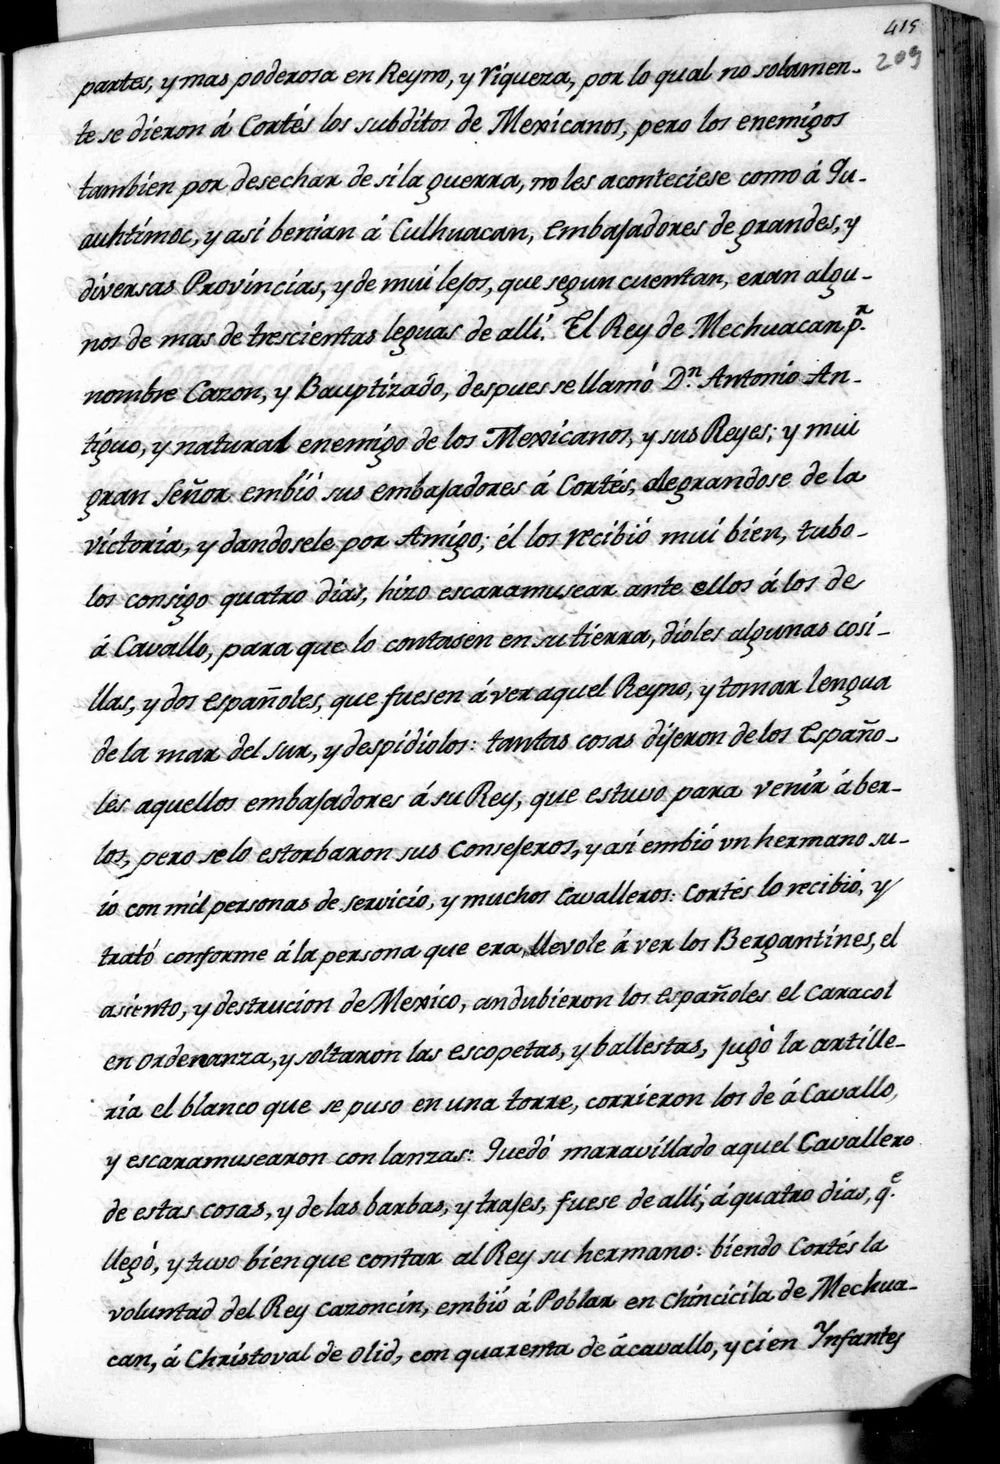 419
209
partes, y mas poderosa en Reyno, y riqueza, por lo qual no solamen-
te se dieron á Cortés los subditos de Mexicanos, pero los enemigos
tambien por desechar de si la guerra, no les aconteciese como á Qu-
auhtimoc, y asi benian á Culhuacan, embajadores de grandes, y
diversas Provincias, y de mui lejos, que segun cuentan, eran algu-
nos de mas de trescientas leguas de alli. El Rey de Mechuacan, pr.
nombre Cazon, y Bauptizado, despues se llamó Dn. Antonio An-
tiguo, y natural enemigo de los Mexicanos, y sus Reyes; y mui
gran Señor embió sus embajadores á Cortés, alegrandose de la
victoria, y dandosele por Amigo; él los recibió mui bien, tubo-
los consigo quatro dias, hizo escaramusear ante ellos á los de
á Cavallo, para que lo contasen en su tierra, dioles algunas cosi-
llas, y dos españoles, que fuesen á ver aquel Reyno, y tomar lengua
de la mar del sur, y despidiolos: tantas cosas dijeron de los Españo-
les aquellos embajadores á su Rey, que estuvo para venir á ber-
los, pero se lo estorbaron sus consejeros, y asi embió vn hermano su-
io con mil personas de servicio, y muchos Cavalleros: Cortés lo recibió, y
trató conforme á la persona que era, llevole á ver los Bergantines, el
asiento, y destrucion de Mexico, andubieron los españoles el caracol
en ordenanza, y soltaron las escopetas, y ballestas, jugó la artille-
ria el blanco que se puso en una torre, corrieron los de á Cavallo,
y escaramusearon con lanzas: Quedó maravillado aquel Cavallero
de estas cosas, y de las barbas, y trajes, fuese de alli, á quatro dias, qe.
llegó, y tuvo bien que contar al Rey su hermano: biendo Cortés la
voluntad del Rey Cazoncin, embió á Poblar en Chincicila de Mechua-
can, á Christoval de Olid, con quarenta de ácavallo, y cien Ynfantes